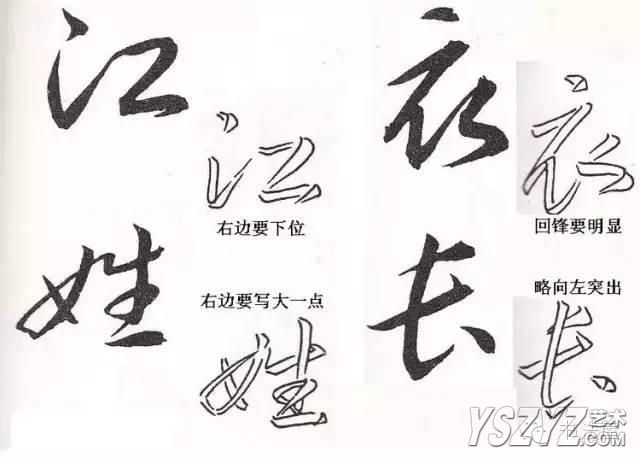 江
江
右边要下位
姓
右边要写大一点
姓
衣
衣
回锋要明显
长
略向左突出
长
YSZYZ艺术
.COM